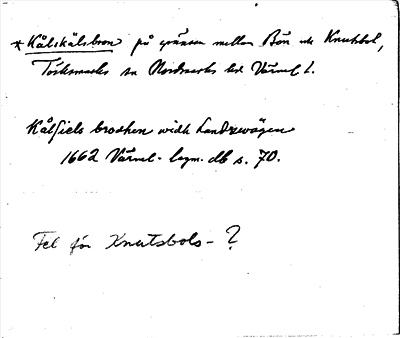 *Kålskålsbron på gränsen mellan Bön och Knutsbol,
Töcksmarks sn Nordmarks hd Värml l.
Kålsiels broohen widh Landzwägen
1662 Värml. lagm. db s. 70.
Fel för Knutsbols- ?